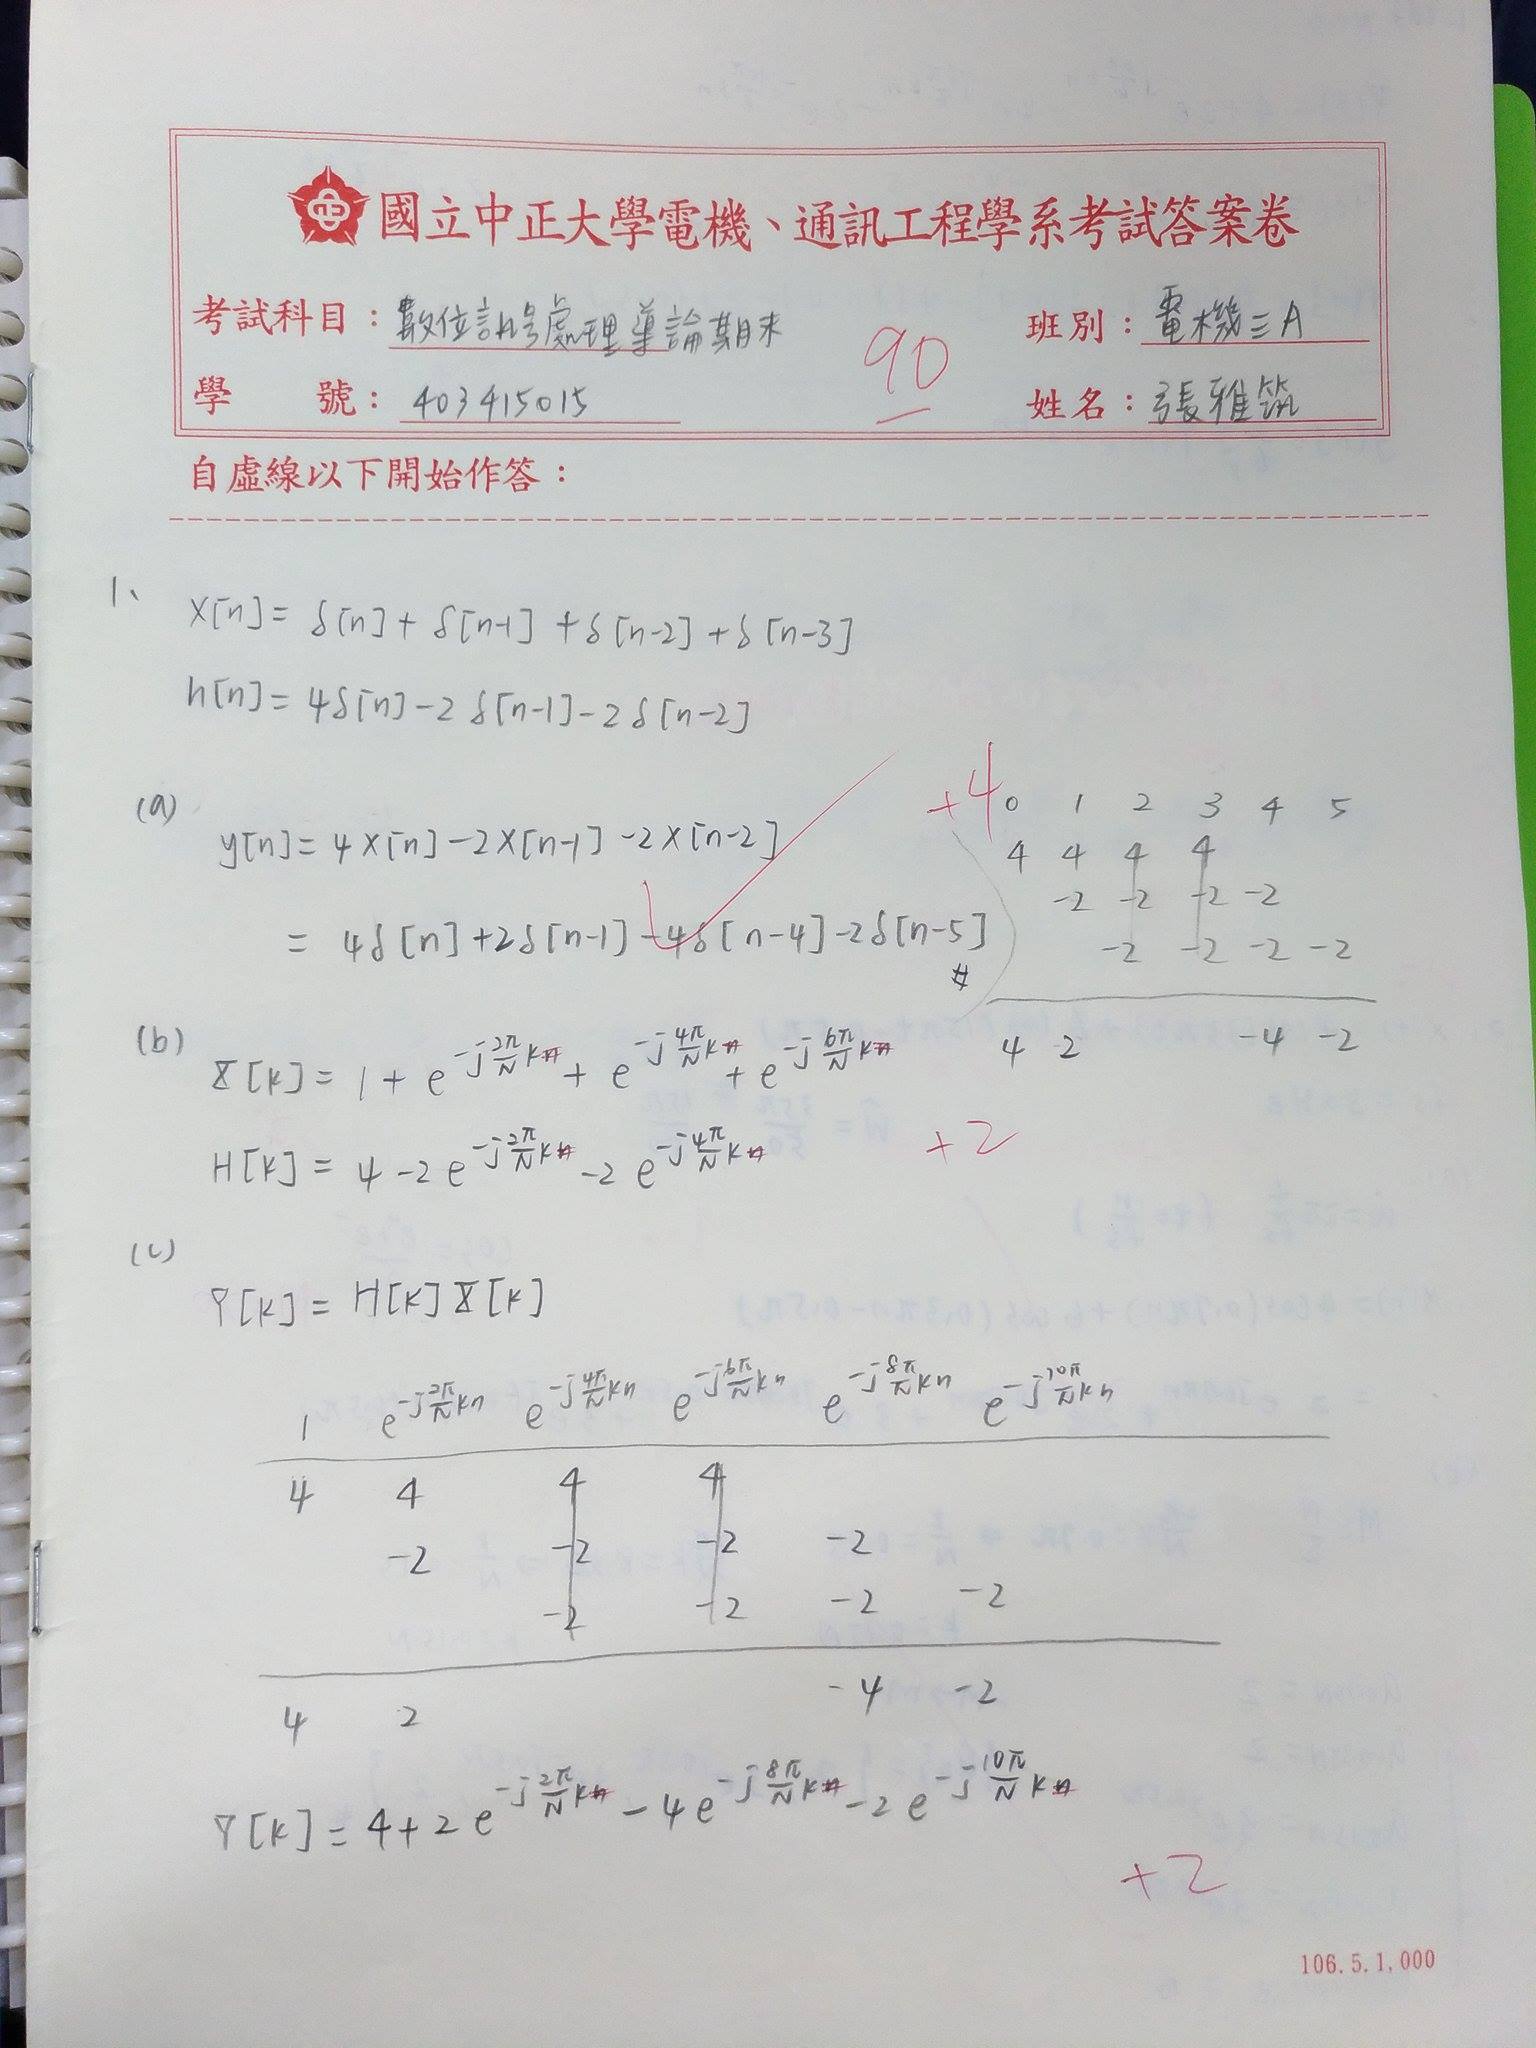 國立中正大學電機、通訊工程學系考試答案卷
考試科目：數位訊號處理導論期末
班別：電機三A
90
學 號：403415015
姓名：張雅筑
自虛線以下開始作答：
1、 X[n] = δ[n] + δ[n-1] + δ[n-2] + δ[n-3]
h[n] = 4δ[n] - 2δ[n-1] - 2δ[n-2]
(a) y[n] = 4X[n] - 2X[n-1] - 2X[n-2]
= 4δ[n] + 2δ[n-1] - 4δ[n-4] - 2δ[n-5] #
+4
0 1 2 3 4 5
4 4 4 4
-2 -2 -2 -2
-2 -2 -2 -2
4 2 -4 -2
(b) X[k] = 1 + e^{-j\frac{2π}{N}kn} + e^{-j\frac{4π}{N}kn} + e^{-j\frac{6π}{N}kn}
H[k] = 4 - 2e^{-j\frac{2π}{N}kn} - 2e^{-j\frac{4π}{N}kn}
+2
(c) Y[k] = H[k] X[k]
1 e^{-j\frac{2π}{N}kn} e^{-j\frac{4π}{N}kn} e^{-j\frac{6π}{N}kn} e^{-j\frac{8π}{N}kn} e^{-j\frac{10π}{N}kn}
4 4 4 4
-2 -2 -2 -2
-2 -2 -2 -2
4 2 -4 -2
Y[k] = 4 + 2e^{-j\frac{2π}{N}kn} - 4e^{-j\frac{8π}{N}kn} - 2e^{-j\frac{10π}{N}kn}
+2
106.5.1,000